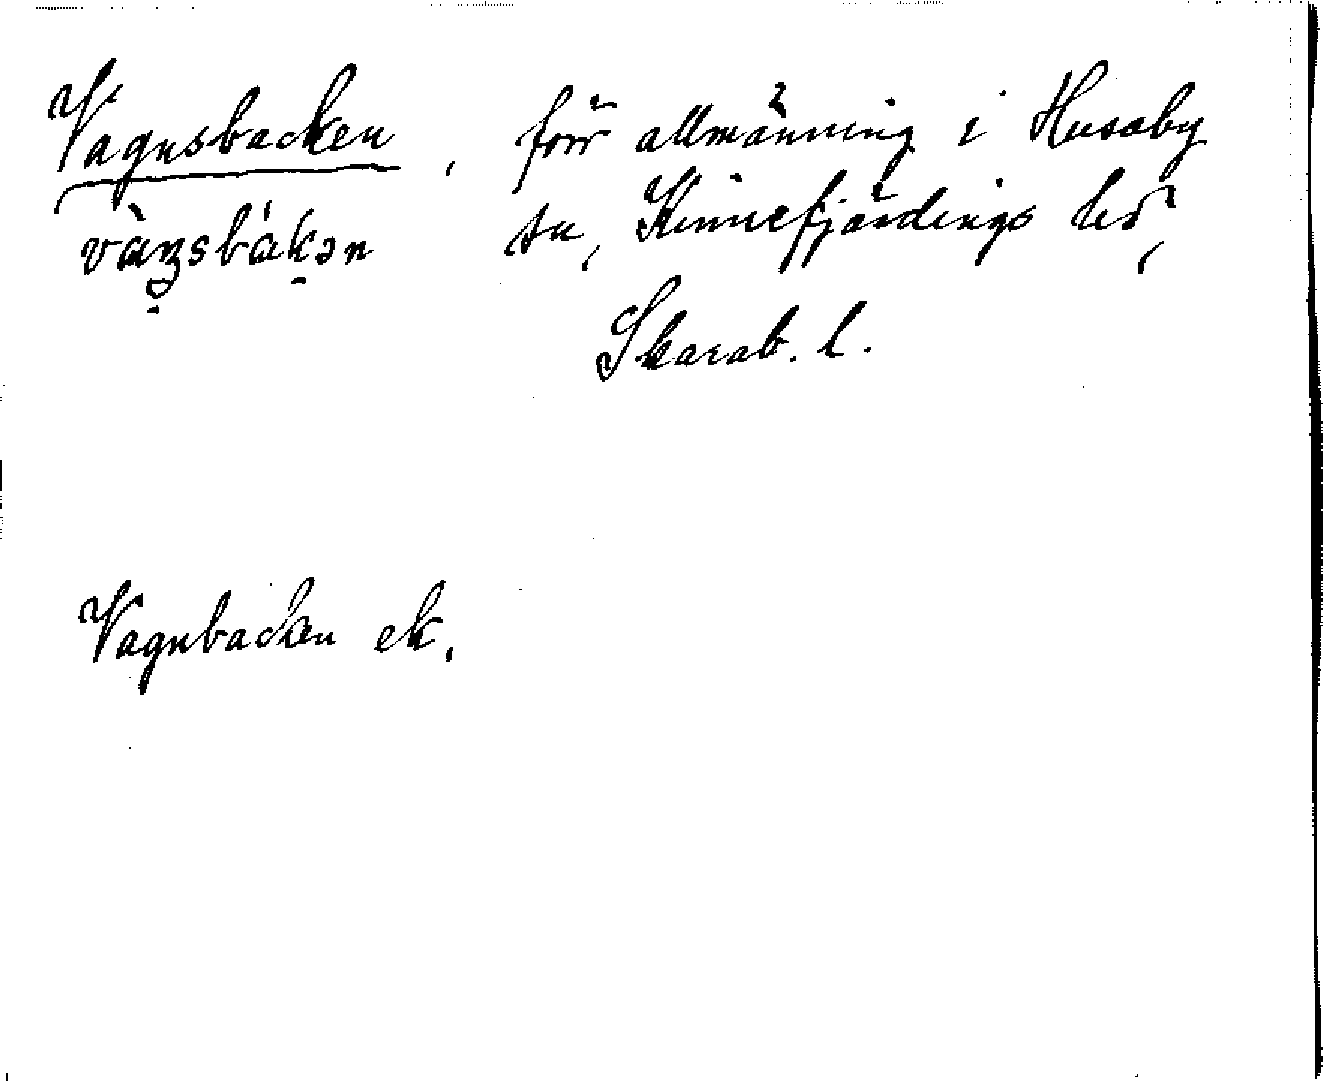 Vagnsbacken, förr allmänning i Husaby
sn, Kinnefjärdings hd,
Skarab. l.
Vagnbacken ek.